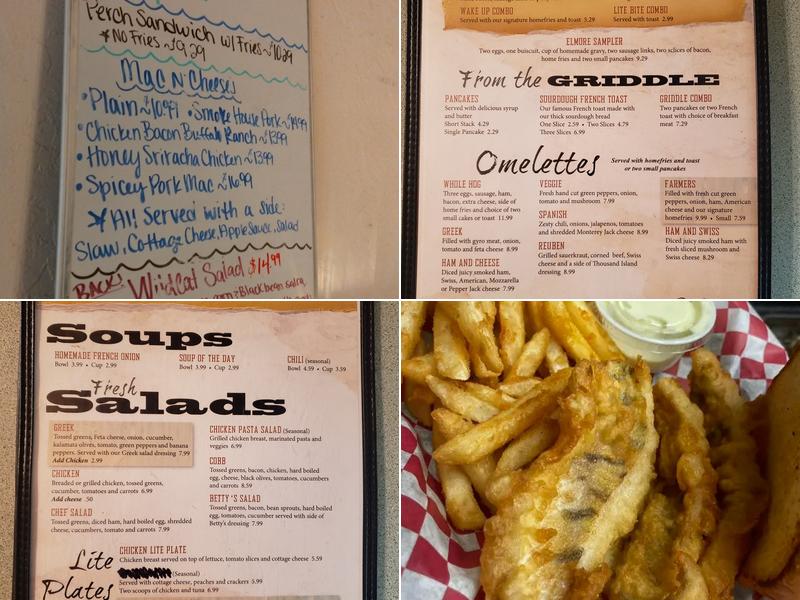 Perch Sandwich w/ Fries ~ 10.29
* NO Fries ~ 9.29
Mac N' Cheeses
• Plain ~ 10.99 • Smoke House Pork ~
• Chicken Bacon Buffalo Ranch ~ 13.99
• Honey Sriracha Chicken ~ 13.99
• Spicey Pork Mac ~
* All Served with a side:
Slaw, Cottage Cheese, Apple Sauce, Salad
BACK! Wildcat Salad $14.99
Black bean salsa,
WAKE UP COMBO
Served with our signature homefries and toast 5.29
LITE BITE COMBO
Served with toast 2.99
ELMORE SAMPLER
Two eggs, one buiscuit, cup of homemade gravy, two sausage links, two slices of bacon,
home fries and two small pancakes 9.29
From the GRIDDLE
PANCAKES
Served with delicious syrup
and butter
Short Stack 4.29
Single Pancake 2.29
SOURDOUGH FRENCH TOAST
Our famous French toast made with
our thick sourdough bread
One Slice 2.59 • Two Slices 4.79
Three Slices 6.99
GRIDDLE COMBO
Two pancakes or two French
toast with choice of breakfast
meat 7.29
Omelettes
Served with homefries and toast
or two small pancakes
WHOLE HOG
Three eggs, sausage, ham,
bacon, extra cheese, side of
home fries and choice of two
small cakes or toast 11.99
GREEK
Filled with gyro meat, onion,
tomato and feta cheese 8.99
HAM AND CHEESE
Diced juicy smoked ham,
Swiss, American, Mozzarella
or Pepper Jack cheese 7.99
VEGGIE
Fresh hand cut green peppers, onion,
tomato and mushroom 7.99
SPANISH
Zesty chili, onions, jalapenos, tomatoes
and shredded Monterey Jack cheese 8.99
REUBEN
Grilled sauerkraut, corned beef, Swiss
cheese and a side of Thousand Island
dressing 8.99
FARMERS
Filled with fresh cut green
peppers, onion, ham, American
cheese and our signature
homefries 9.99 • Small 7.59
HAM AND SWISS
Diced juicy smoked ham with
fresh sliced mushroom and
Swiss cheese 8.29
Soups
HOMEMADE FRENCH ONION
Bowl 3.99 • Cup 2.99
SOUP OF THE DAY
Bowl 3.99 • Cup 2.99
CHILI (seasonal)
Bowl 4.59 • Cup 3.59
Fresh
Salads
GREEK
Tossed greens, Feta cheese, onion, cucumber,
kalamata olives, tomato, green peppers and banana
peppers. Served with our Greek salad dressing 7.99
Add Chicken 2.99
CHICKEN
Breaded or grilled chicken, tossed greens,
cucumber, tomatoes and carrots 6.99
Add cheese .50
CHEF SALAD
Tossed greens, diced ham, hard boiled egg, shredded
cheese, cucumbers, tomatoes and carrots 7.99
CHICKEN PASTA SALAD (Seasonal)
Grilled chicken breast, marinated pasta and
veggies 6.99
COBB
Tossed greens, bacon, chicken, hard boiled
egg, cheese, black olives, tomatoes, cucumbers
and carrots 8.59
BETTY 'S SALAD
Tossed greens, bacon, bean sprouts, hard boiled
egg, tomatoes, cucumber served with side of
Betty's dressing 7.99
Lite
Plates
CHICKEN LITE PLATE
Chicken breast served on top of lettuce, tomato slices and cottage cheese 5.59
(Seasonal)
Served with cottage cheese, peaches and crackers 5.99
Two scoops of chicken and tuna 6.99